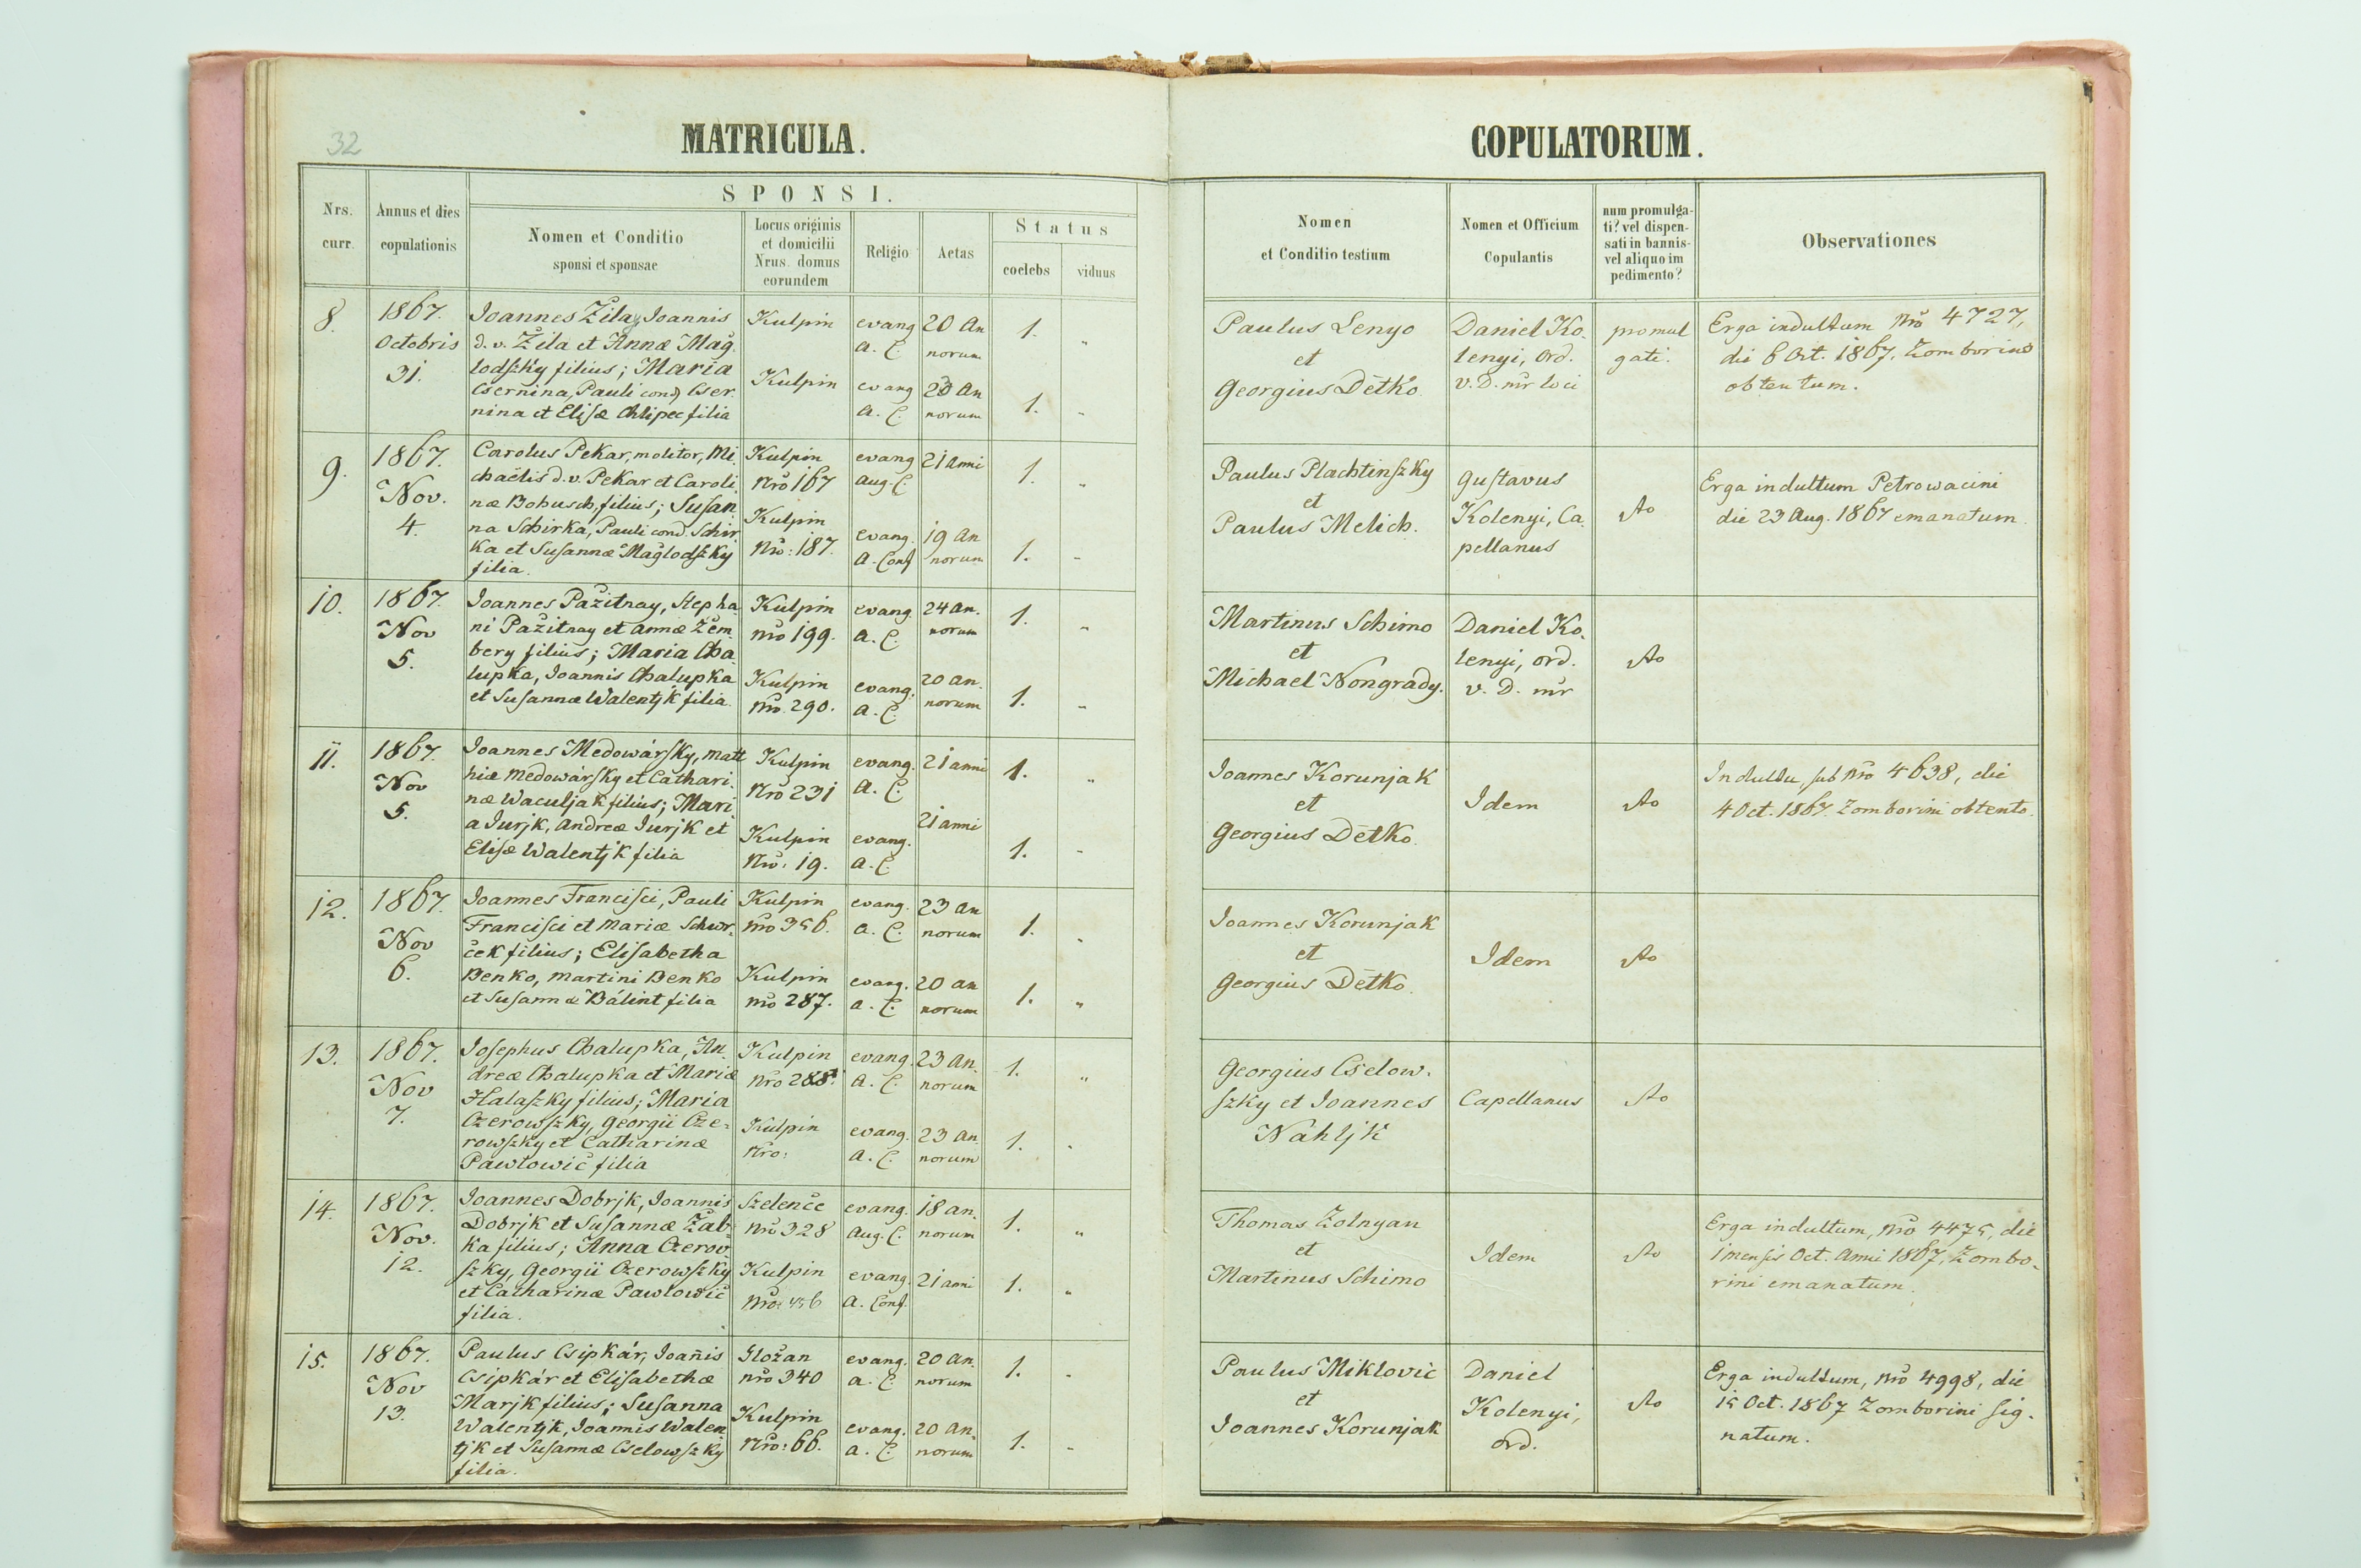 32
MATRICULA.
COPULATORUM.
SPONSI.
Nrs. curr.
Annus et dies copulationis
Nomen et Conditio sponsi et sponsae
Locus originis et domicilii Nrus. domus eorundem
Religio
Aetas
Status
coelebs
viduus
Nomen et Conditio testium
Nomen et Officium Copulantis
num promulga-
ti? vel dispen-
sati in bannis-
vel aliquo im
pedimento?
Observationes
8.
1867.
Octobris
31.
Joannes Žila, Joannis
d. v. Žila et Annæ Mag̃
lodszky filius; Maria
Csernina, Pauli cond. Cser
nina et Elisæ Chlipec filia
Kulpin
Kulpin
evang
a. C.
evang
a. C.
20 an
norum
20 an
norum
1. „
1. „
Paulus Lenyo
et
Georgius Détko
Daniel Ko.
lenyi, Ord.
v. D. mr loci
promul
gati.
Erga indultum Nro 4727,
die 6 Oct. 1867. Zomborini
obtentum.
9.
1867.
Nov.
4.
Carolus Pekar, molitor, Mi
chaëlis d. v. Pekar et Caroli
næ Bohusch, filius; Susan
na Schirka, Pauli cond. Schir
ka et Susannæ Maglodszky
filia.
Kulpin
Nro 167
Kulpin
Nro: 187.
evang
aug. C.
evang.
a. Conf
21 anni
19 an
norum
1. „
1. „
Paulus Plachtinszky
et
Paulus Melich.
Gustavus
Kolenyi, Ca.
pellanus
dto
Erga indultum Petrowacini
die 23 Aug. 1867 emanatum.
10.
1867.
Nov
5.
Joannes Pažitnay, Stepha
ni Pažitnay et Annæ Žem
bery filius; Maria Cha
lupka, Joannis Chalupka
et Susannæ Walentjk filia.
Kulpin
nro 199.
Kulpin
Nro 290.
evang.
a. C.
evang.
a. C.
24 an.
norum
20 an.
norum
1. „
1. „
Martinus Schimo
et
Michael Nongrady.
Daniel Ko.
lenyi, ord.
v. D. mr
dto
11.
1867.
Nov
5.
Joannes Medowársky, Matt
hiæ Medowársky et Cathari.
næ Waculjak filius; Mari
a Jurjk, Andreæ Jurjk et
Elisæ Walentjk filia
Kulpin
Nro 231
Kulpin
Nro: 19.
evang.
a. C.
evang.
a. C.
21 anni
21 anni
1. „
1. „
Joannes Korunjak
et
Georgius Détko.
Idem
dto
Indultu sub Nro 4638, die
4 Oct. 1867. Zomborini obtento.
12.
1867.
Nov
6.
Joannes Francisci, Pauli
Francisci et Mariæ Schwr.
ček filius; Elisabetha
Benko, Martini Benko
et Susannæ Bálint filia
Kulpin
nro 356.
Kulpin
nro 287.
evang.
a. C.
evang.
a. C.
23 an
norum
20 an
norum
1. „
1. „
Joannes Korunjak
et
Georgius Détko.
Idem
dto
13.
1867.
Nov
7.
Josephus Chalupka, An.
dreæ Chalupka et Mariæ
Halaszky filius; Maria
Czerowszky, Georgii Cze-
rowszky et Catharinæ
Pawlowič filia
Kulpin
Nro 288.
Kulpin
Nro:
evang.
a. C.
evang.
a. C.
23 an.
norum
23 an.
norum
1. „
1. „
Georgius Cselow.
szky et Joannes
Nahljk
Capellanus
dto
14.
1867.
Nov.
12.
Joannes Dobrjk, Joannis
Dobrjk et Susannæ Žab-
ka filius; Anna Czerov.
szky, Georgii Czerowszky
et Catharinæ Pawlowič
filia.
Szelenče
Nro 328
Kulpin
Nro: 456
evang.
Aug. C.
evang.
a. Conf.
18 an.
norum
21 anni
1. „
1. „
Thomas Zolnyan
et
Martinus Schimo
Idem
dto
Erga indultum, Nro 4475, die
1 mensis Oct. anni 1867, Zombo-
rini emanatum.
15.
1867.
Nov
13.
Paulus Csipkár, Joañis
Csipkár et Elisabethæ
Marjk filius; Susanna
Walentjk, Joannis Walen
tjk et Susannæ Cselowszky
filia.
Gložan
nro 340
Kulpin
Nro: 66.
evang.
a. C.
evang.
a. C.
20 an.
norum
20 an.
norum
1. „
1. „
Paulus Miklovic
et
Joannes Korunjak
Daniel
Kolenyi,
ord.
dto
Erga indultum, Nro 4998, die
15 Oct. 1867 Zomborini sig.
natum.